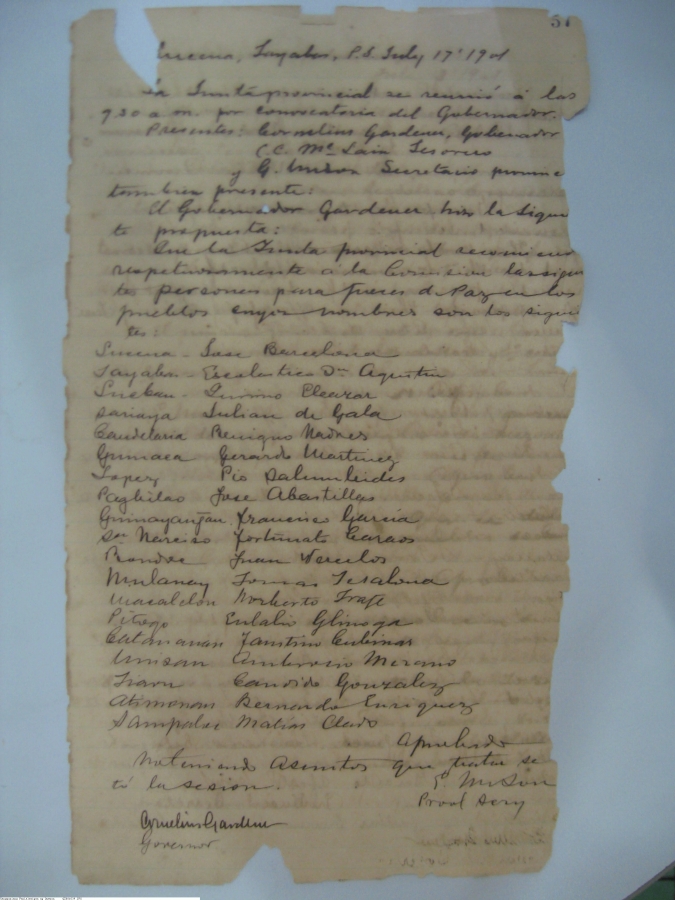 51
Lucena, Tayabas, P.I. July 17' 1901
La Junta provincial se reunió á las
9.30 a m. por convocatoria del Gobernador.
Presentes: Cornelius Gardener, Gobernador
C.C. Mc Lain Tesorero
y G. Secretario
tambien presente:
El Gobernador Gardener hizo la sigui
te propuesta:
Que la Junta provincial recomiend
respetuosamente a la Comision las sigui
tes personas para jueces de Paz en los
pueblos cuyos nombres son los sigui
tes:
Lucena - Jose Barcelona
Tayabas - Escolastico Dn Agustin
Lucban - Eleazar
Sariaya Julian de Gala
Candelaria Benigno
Gumaca Gerardo Martinez
Lopez Pio Salumbides
Pagbilao Jose Abastillas
Guinayangan Francisco Garcia
Sn Narciso Fortunato
Bondoc Juan Verulos
Mulanay Tomas Tesalona
Macalelon Norberto
Pitogo Eulalio Glinoga
Catanauan Faustino
Unisan Ambrosio Merano
Candido Gonzalez
Atimonan Bernardo Enriquez
Sampaloc Matias Clado
Aprobado
No teniendo Asuntos que tratar se
tó la sesion.
Provl Secy
Cornelius Gardener
Governor